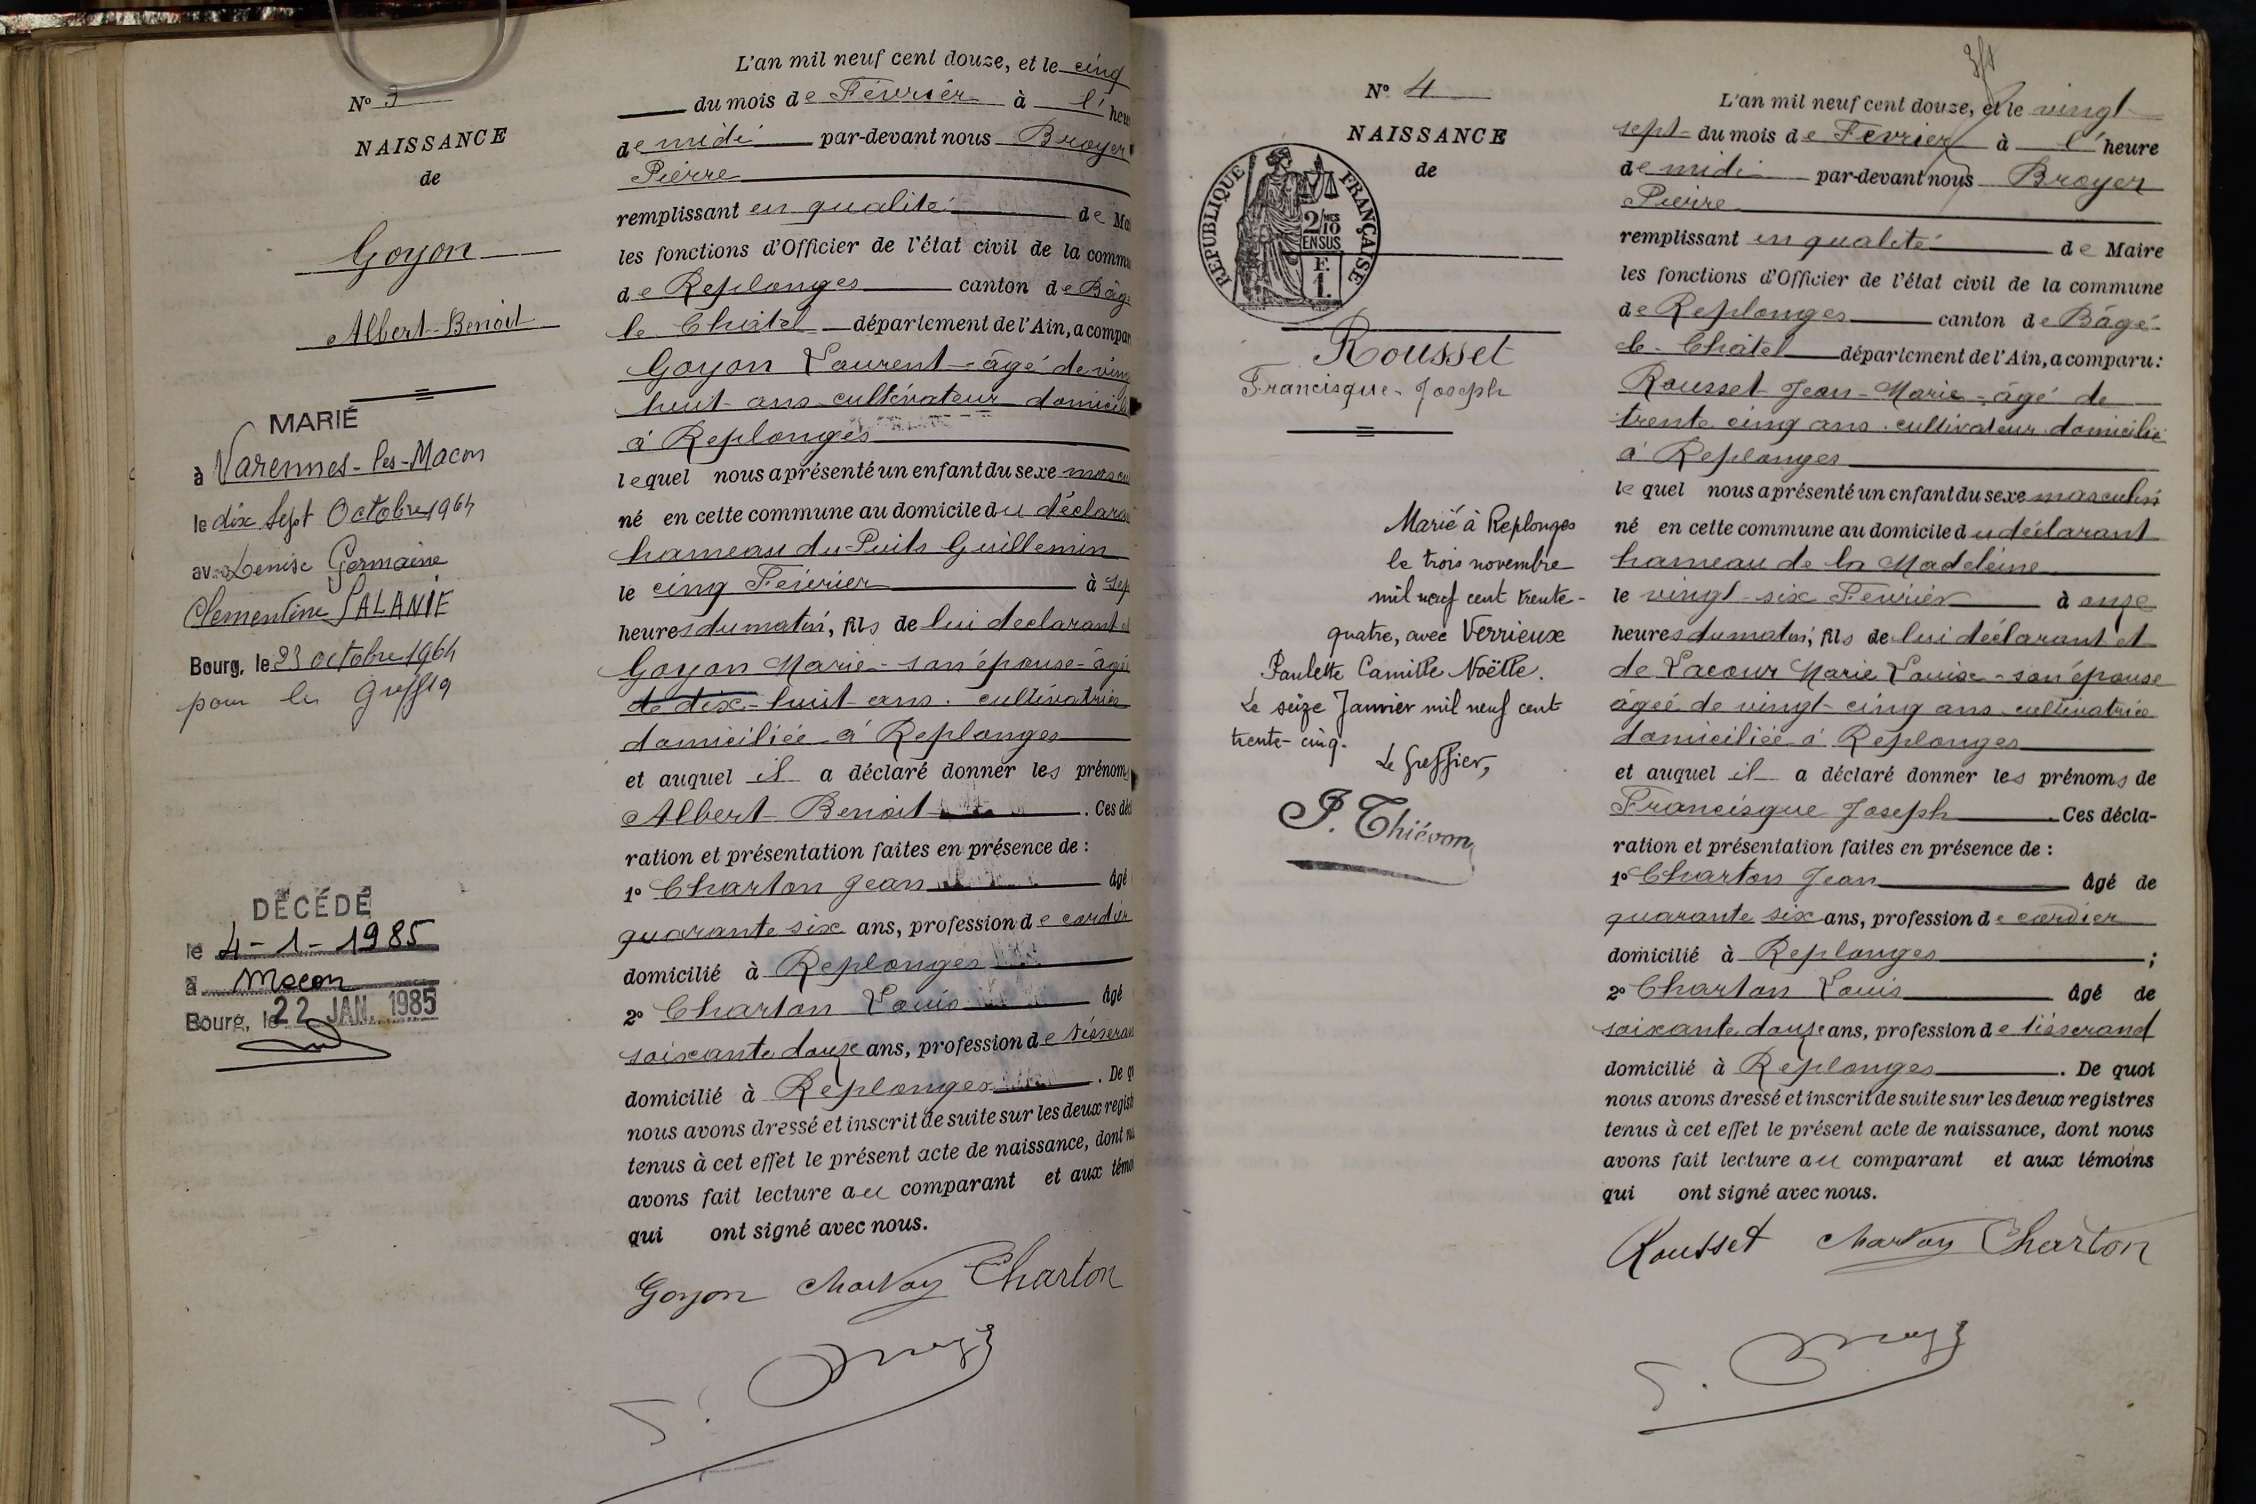 N° 3
NAISSANCE
de
Goyon
Albert-Benoit
MARIÉ
à Varennes-les-Macon
le dix sept Octobre 1964
avec Denise Germaine
Clementine SALANIE
Bourg, le 23 octobre 1964
pour le Greffier
DÉCÉDÉ
le 4-1-1985
à Macon
Bourg, le 22 JAN. 1985
L'an mil neuf cent douze, et le cinq
du mois de Février à l' heu
de midi par-devant nous Broyer
Pierre
remplissant en qualité de Ma
les fonctions d'Officier de l'état civil de la comm
de Replonges canton de Bâg
le Châtel département de l'Ain, a compar
Goyon Laurent - âgé de vin
huit ans cultivateur domicil
à Replonges
lequel nous a présenté un enfant du sexe mascu
né en cette commune au domicile du déclara
hameau du Puits Guillemin
le cinq Février à sep
heures du matin, fils de lui déclarant e
Goyon Marie - son épouse - âgé
de dix-huit ans. cultivatrice
domiciliée à Replonges
et auquel il a déclaré donner les prénoms
Albert Benoit . Ces déc
ration et présentation faites en présence de :
1° Charton Jean âgé
quarante six ans, profession de cordier
domicilié à Replonges
2° Charton Louis âgé
soixante douze ans, profession de tisseran
domicilié à Replonges . De q
nous avons dressé et inscrit de suite sur les deux regist
tenus à cet effet le présent acte de naissance, dont n
avons fait lecture au comparant et aux témo
qui ont signé avec nous.
Goyon Charton Charton
N° 4
NAISSANCE
de
RÉPUBLIQUE FRANÇAISE
2/10 MES
EN SUS
F.
1.
Rousset
Francisque-Joseph
Marié à Replonges
le trois novembre
mil neuf cent trente-
quatre, avec Verrieux
Paulette Camille Noëlle.
Le seize Janvier mil neuf cent
trente-cinq.
Le Greffier,
P. Thiévon
L'an mil neuf cent douze, et le vingt
sept du mois de Février à l' heure
de midi par-devant nous Broyer
Pierre
remplissant en qualité de Maire
les fonctions d'Officier de l'état civil de la commune
de Replonges canton de Bâgé-
le-Châtel département de l'Ain, a comparu :
Rousset Jean-Marie - âgé de
trente cinq ans. cultivateur domicilié
à Replonges
lequel nous a présenté un enfant du sexe masculin
né en cette commune au domicile du déclarant
hameau de la Madeleine
le vingt-six Février à onze
heures du matin, fils de lui déclarant et
de Lacour Marie Louise - son épouse
âgée de vingt-cinq ans cultivatrice
domiciliée à Replonges
et auquel il a déclaré donner les prénoms de
Francisque Joseph . Ces décla-
ration et présentation faites en présence de :
1° Charton Jean âgé de
quarante six ans, profession de cordier
domicilié à Replonges ;
2° Charton Louis âgé de
soixante douze ans, profession de tisserand
domicilié à Replonges . De quoi
nous avons dressé et inscrit de suite sur les deux registres
tenus à cet effet le présent acte de naissance, dont nous
avons fait lecture au comparant et aux témoins
qui ont signé avec nous.
Rousset Charton Charton